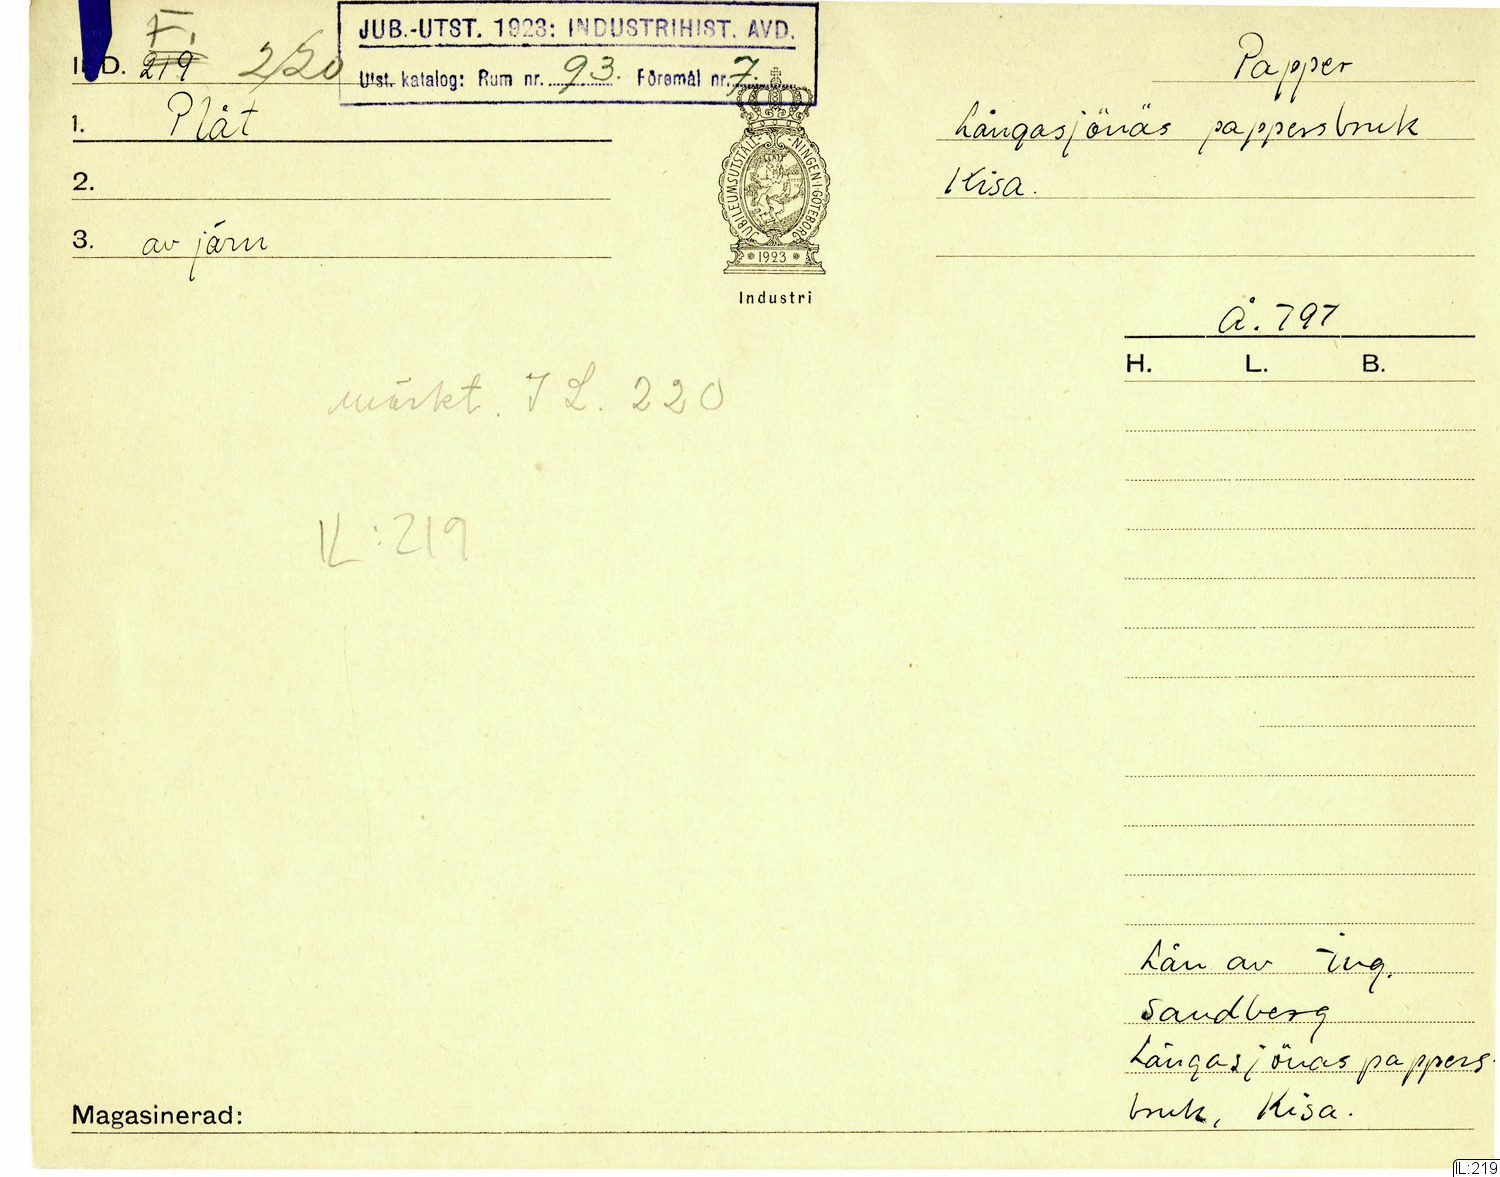 F.
IND. 219 220
JUB.-UTST. 1923: INDUSTRIHIST. AVD.
Utst. katalog: Rum nr. 93. Föremål nr. 7.
1. Plåt
2.
3. av järn
JUBILEUMSUTSTÄLL-NINGEN I GÖTEBORG
1923
Industri
Papper
Långasjönäs pappersbruk
Kisa.
Å. 797
H. L. B.
märkt. I L. 220
IL:219
Lån av Ing.
Sandberg
Långasjönäs pappers-
bruk, Kisa.
Magasinerad:
IL:219